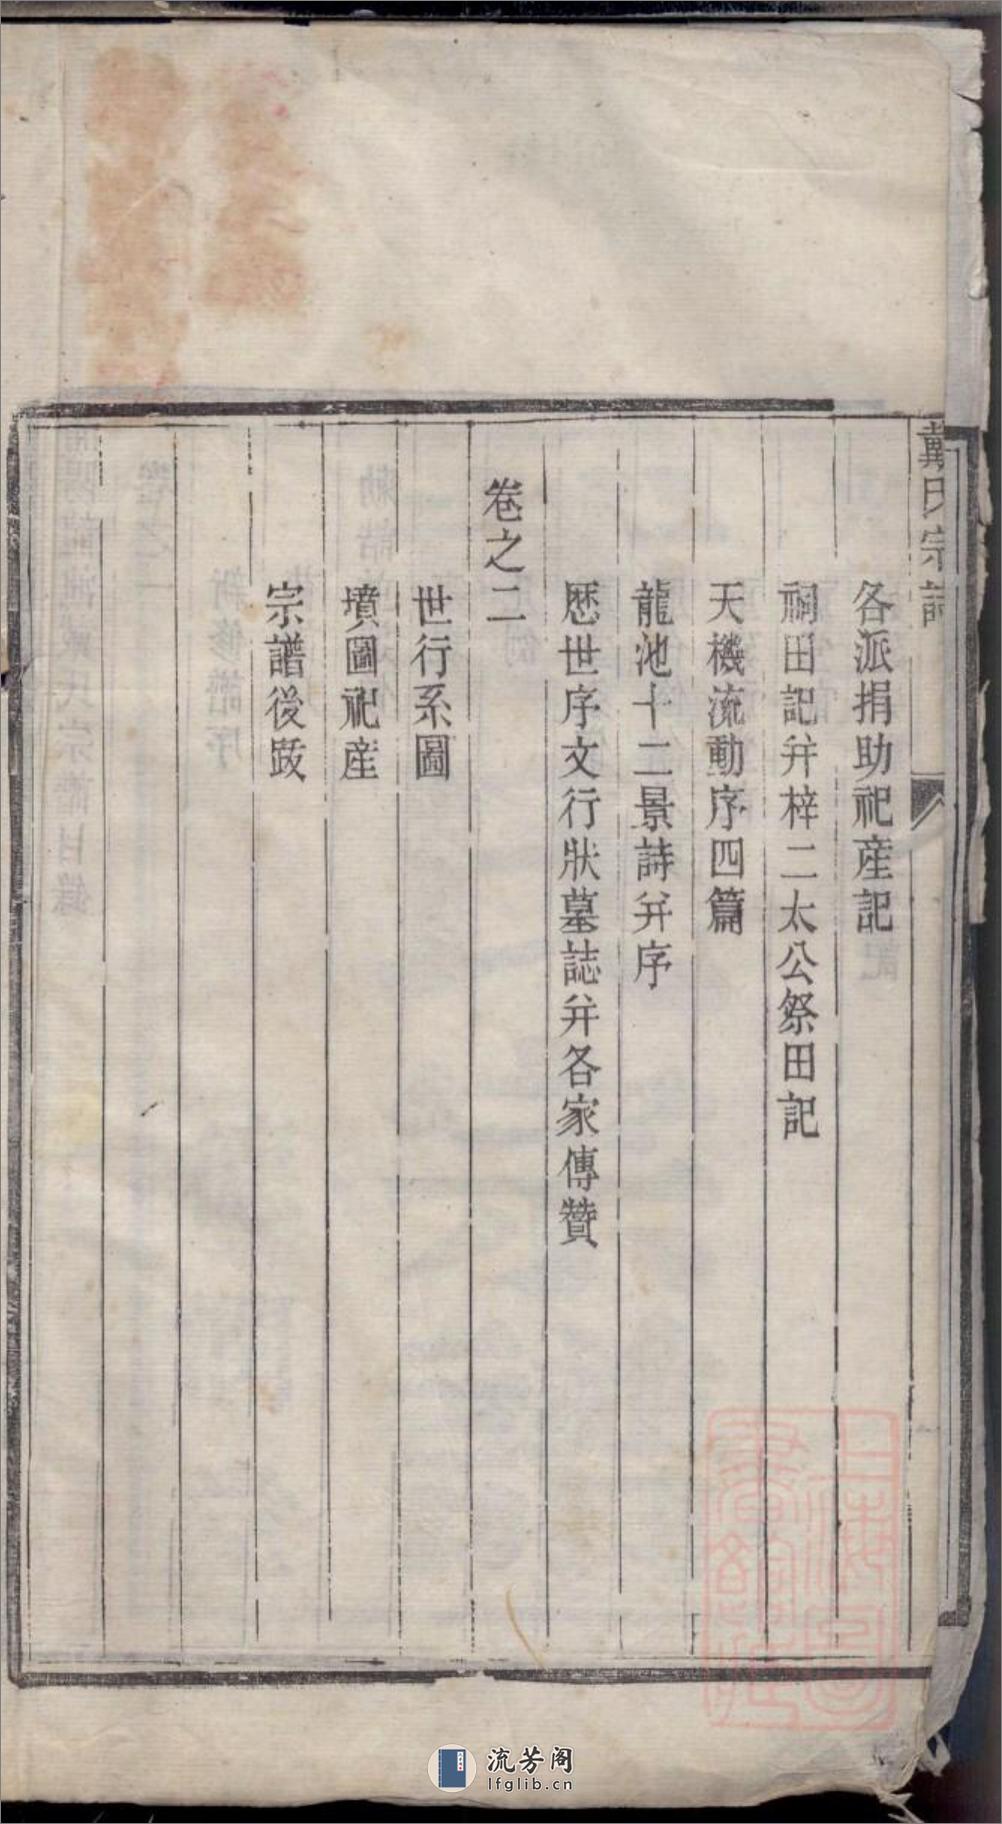 戴氏宗譜
各派捐助祀産記
祠田記并梓二太公祭田記
天機流動序四篇
龍池十二景詩并序
歷世序文行狀墓誌并各家傳贊
卷之二
世行系圖
墳圖祀産
宗譜後跋
流芳阁
lfglib.cn